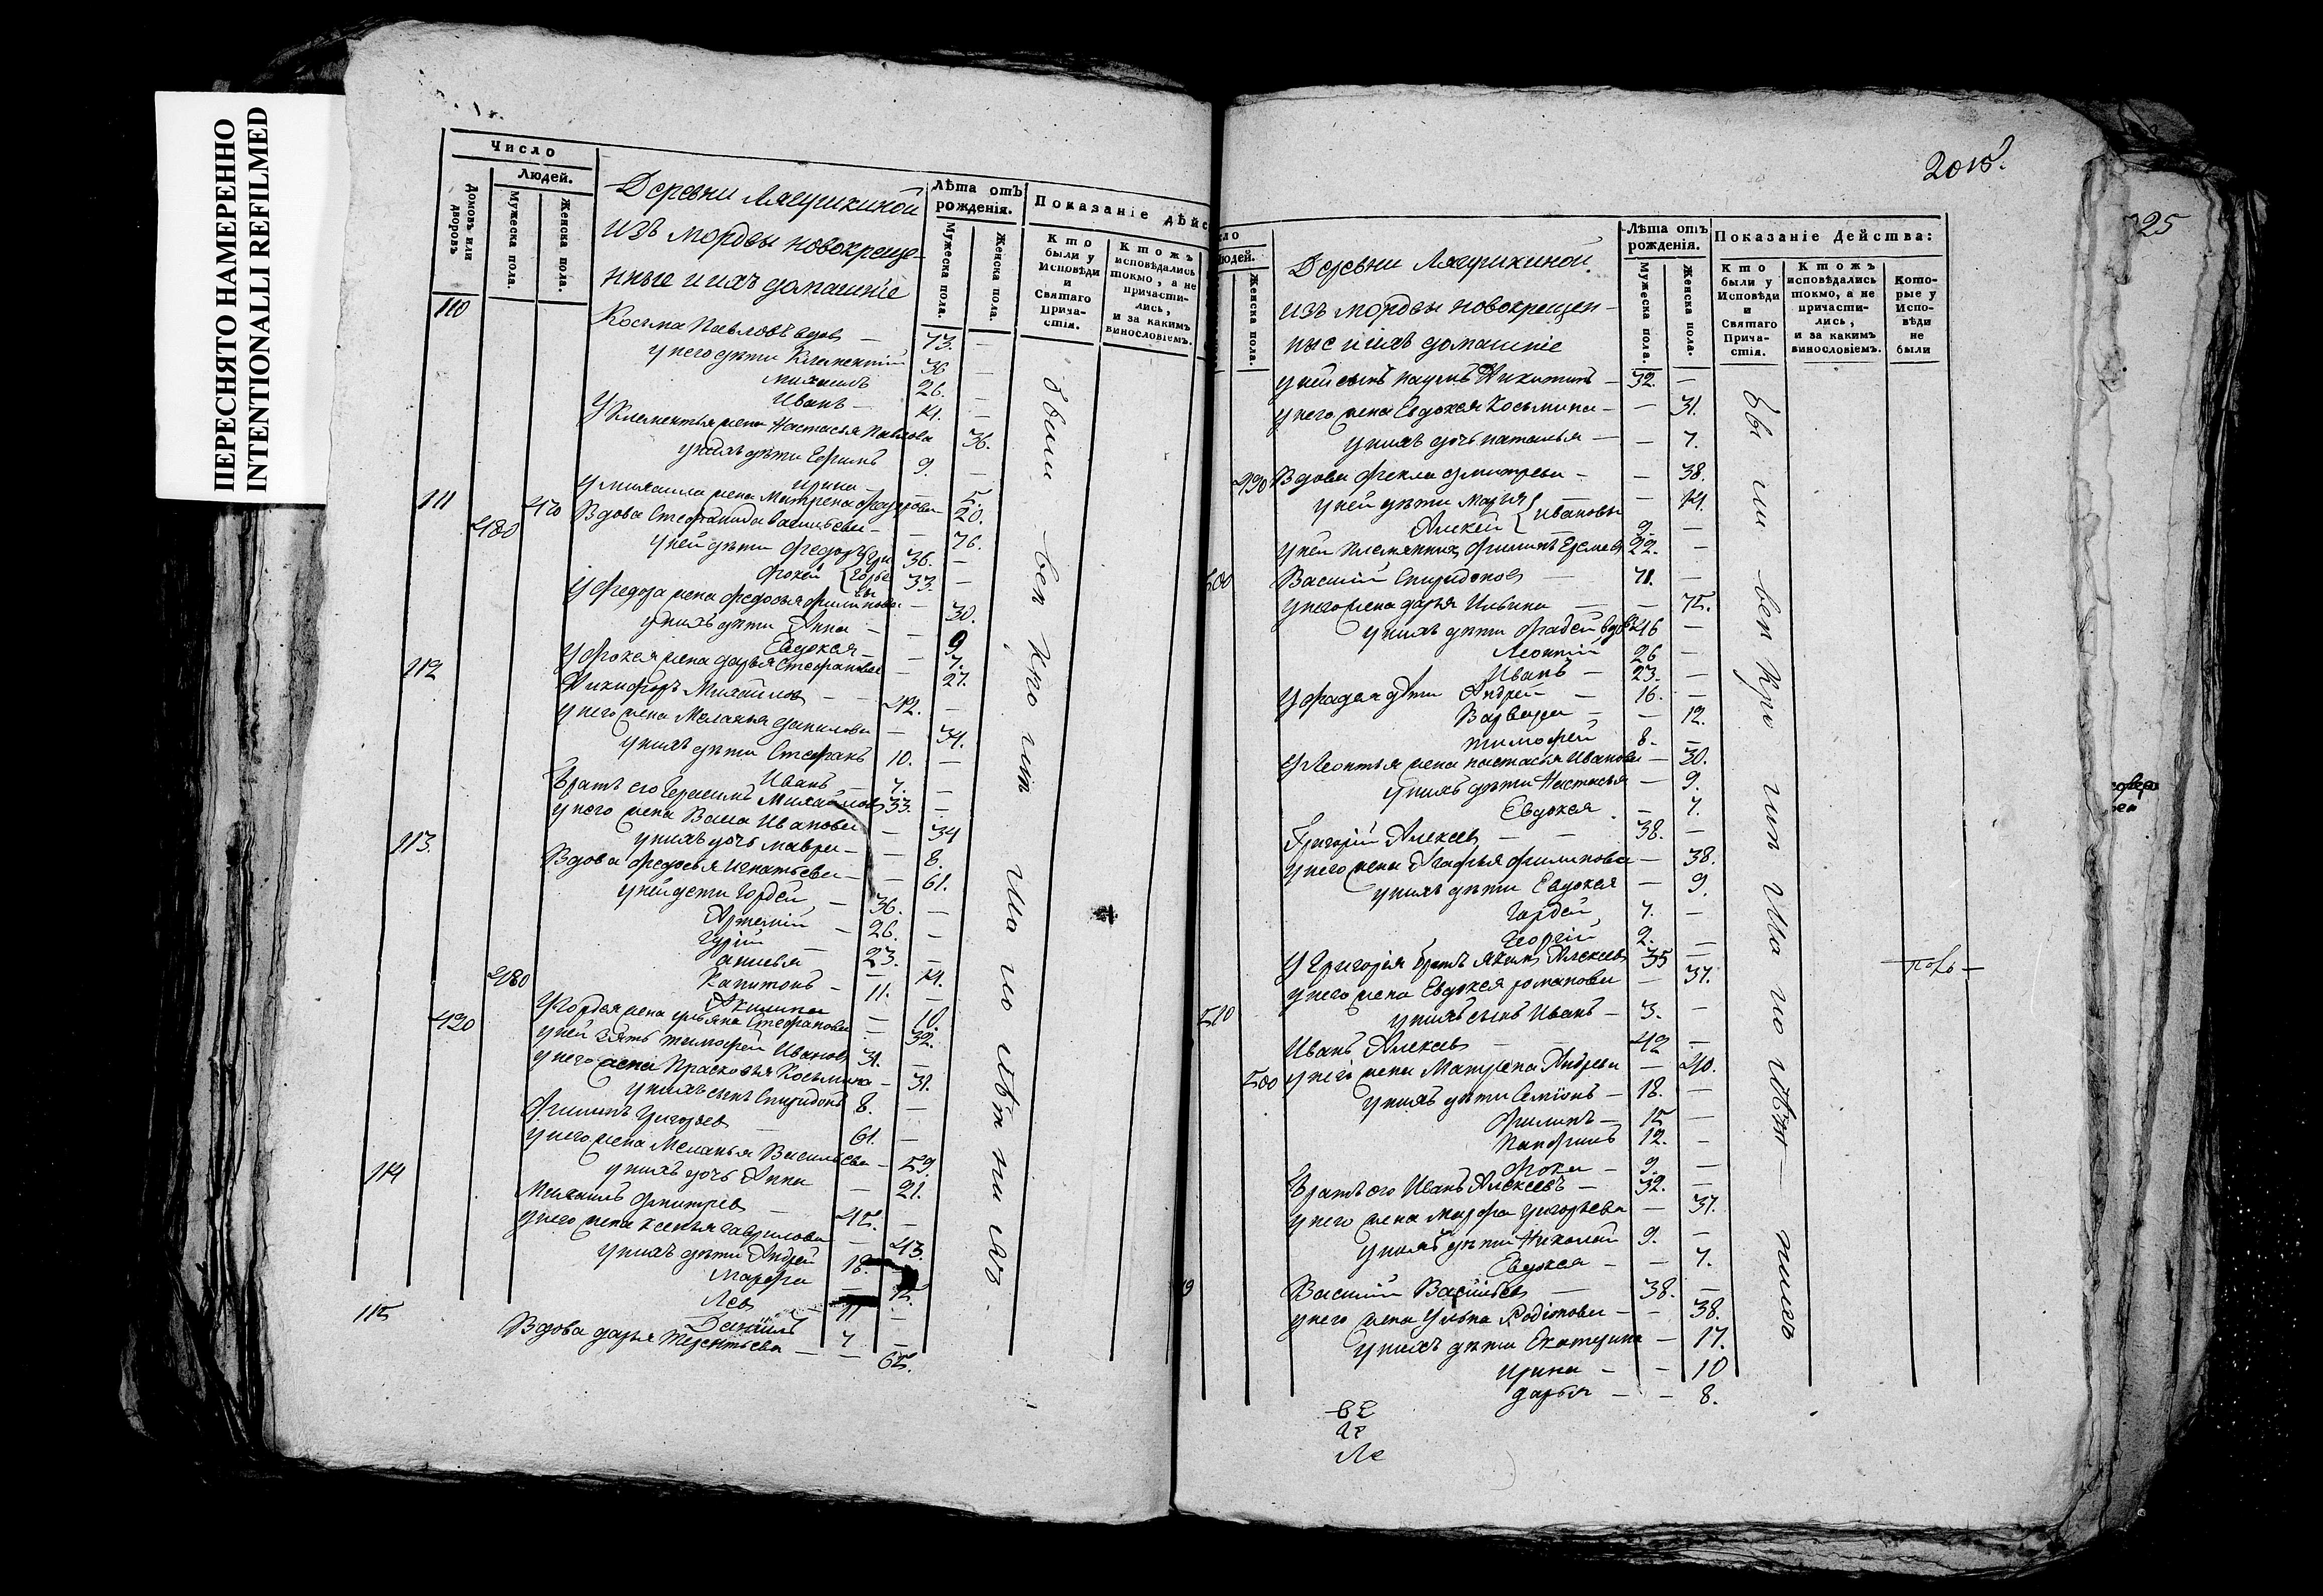 ПЕРЕСНЯТО НАМЕРЕННО
INTENTIONALLI REFILMED
Число
Людей.
Домовъ или дворовъ
Мужеска пола.
Женска пола.
Деревни Лягушкиной
изъ мордвы новокреще-
нные и ихъ домашнiе
Лѣта отъ рожденiя.
Мужеска пола.
Женска пола.
Показанiе дѣйс
Кто были у Исповѣди и Святаго Прича-стiя.
Ктожъ исповѣдались токмо, а не причасти-лись, и за какимъ винословiемъ.
110 Косьма Павловъ вдовъ — 73. —
у него дѣти Климентiй 36 —
Михаилъ 26. —
Иванъ — 14. —
У Климентья жена Настасья Павлова 36.
у нихъ дѣти Ефимъ 9. —
Ирина — 5.
У михаила жена Матрена 20.
111 470 Вдова Стефанида васильева — — 76.
480 у ней дѣти Федоръ 36. —
Фокей 33. —
У Федора жена федосья филипова — 30.
у нихъ дѣти Анна — — 9
Евдокея — — 7.
У Фокея жена дарья Стефанова — 27.
112 Никифоръ Михаиловъ — — 42. —
у него жена Меланья данилова — 34.
у нихъ дѣти Стефанъ 10. —
Иванъ — 7. —
Братъ его Герасимъ Михаиловъ 33. —
у него жена Васа Иванова — 34
у нихъ дочь мавра — — 8.
113. Вдова федосья игнатьева — — 61.
у ней дети Гордей — 36. —
Артемiй — 26. —
Гурiй — 23. —
анисья — 14.
480 Капитонъ — 11. —
Акилина — 10.
У Гордея жена ульяна Стефанова — 32.
490 у ней зять тимофей Ивановъ 31. —
у него жена Прасковья Косьмина — 31.
у нихъ сынъ Спиридонъ 8. —
Филипъ Григорьевъ — 61. —
у него жена Меланья Васильева — 59.
у нихъ дочь Анна — 21.
114 Михаилъ дмитревъ — 45. —
у него жена ксенья гаврилова — 43.
у нихъ дѣти Андрей 18.
Марфа
Левъ 11 —
Данiилъ 4 —
115 Вдова дарья Терентьева — — 65.
были
вси
кто
2015.
725
ло
юдей.
Женска пола.
Деревни Лягушкиной.
изъ мордвы новокрещен-
ные и ихъ домашнiе
Лѣта отъ рожденiя.
Мужеска пола.
Женска пола.
Показанiе Действа:
Кто были у Исповѣди и Святаго Прича-стiя.
Ктожъ исповѣдались токмо, а не причасти-лись, и за какимъ винословiемъ.
Кото-рые у Испо-вѣди не были
у ней сынъ наумъ Никитинъ — 32. —
у него жена Евдокея Косьмина — — 31.
у нихъ дочь наталья — — 7.
490 Вдова фекла дмитрева — — 38.
у ней дѣти марья Ивановы — 14.
Алексей 9. —
у ней племянникъ филипъ Еремеевъ 22. —
500 Василiй Спиридоновъ — 71. —
у него жена дарья Ильина — — 75.
у нихъ дѣти фадей вдовъ 46 —
Леонтiй 26 —
Иванъ — 23. —
У фадея дѣти Андрей — 16. —
Варвара — — 12.
тимофей 8. —
У Леонтья жена настасья Иванова — 30.
у нихъ дѣти Настасья — 9.
Евдокея — 7.
Григорiй Алексеевъ — — 38. —
у него жена Агафья филипова — 38.
у нихъ дѣти Евдокея — 9.
Гордей 7. —
Георгiй 2. —
У Григорiя братъ Алексеевъ 35 —
у него жена Евдокея романова — 37.
510 у нихъ сынъ Иванъ — 3. —
Иванъ Алексеевъ — — 42 —
500 у него жена Матрена Андреева — 40.
у нихъ дѣти Семiонъ — 18. —
Филипъ — 15 —
Панфилъ 12. —
Фока — 9. —
Братъ его Иванъ Алексеевъ — 32. —
у него жена марфа григорьева — 37.
у нихъ дѣти Николай 9. —
Евдокея — — 7.
9 Василiй Васильевъ — 38. —
у него жена Ульяна Родiонова — — 38.
у нихъ дѣти Екатерина — 17.
Ирина — — 10
дарья — — 8.